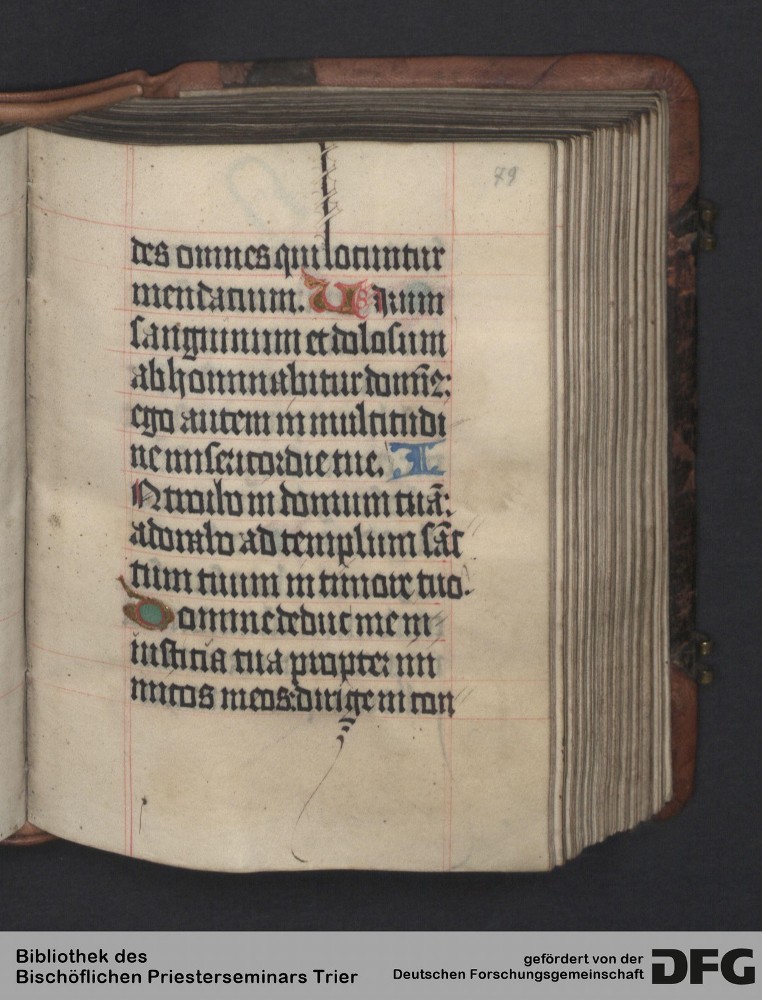 79
des omnes qui locuntur
mendatium. Uirum
sanguinum et dolosum
abhominabitur domīꝰ:
ego autem in multitudi
ne misericordie tue. I
Ntroibo in domum tuā:
adorabo ad templum sāc
tum tuum in timore tuo.
Domine deduc me in
iusticia tua propter ini
micos meos: dirige in con
Bibliothek des
Bischöflichen Priesterseminars Trier
gefördert von der
Deutschen Forschungsgemeinschaft
DFG